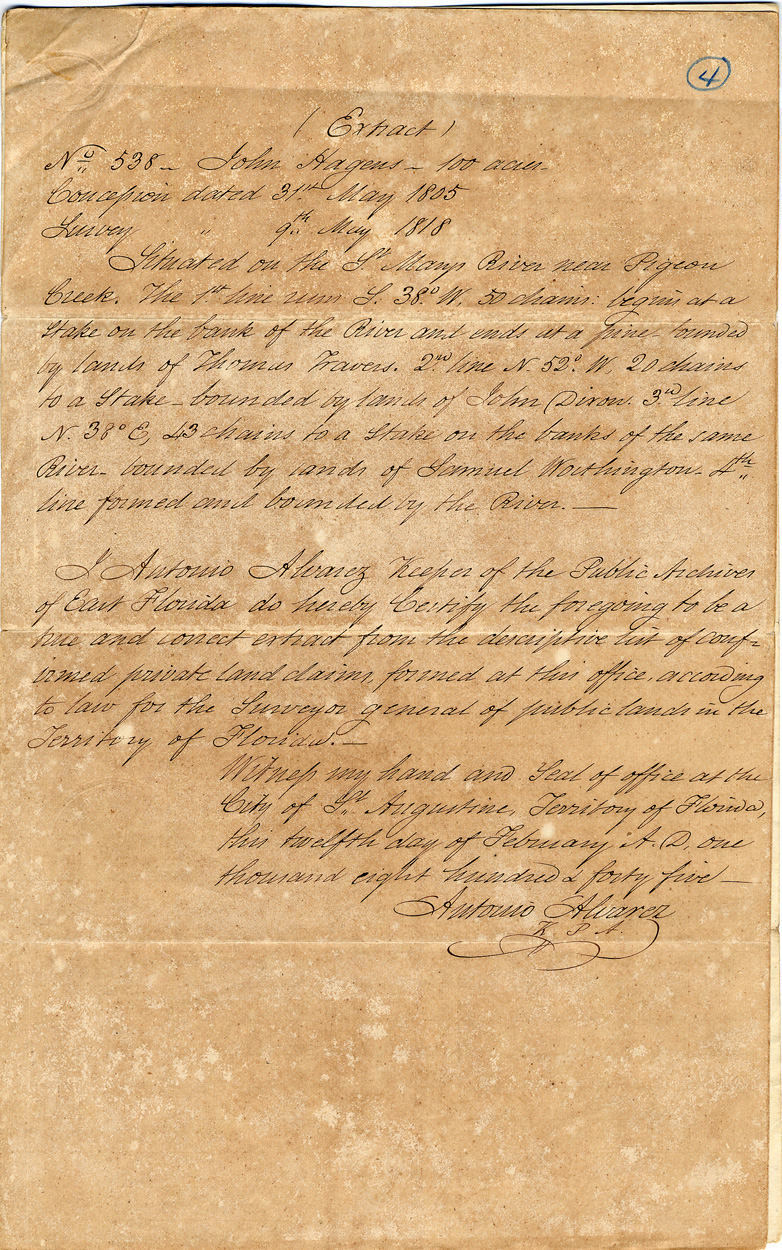 4
( Extract )
No 538 - John Hagens - 100 acres -
Concession dated 31st May 1805
Survey " 9th May 1818
Situated on the St Marys River near Pigeon
Creek. The 1st line runs S. 38° W. 50 chains: begins at a
Stake on the bank of the River and ends at a pine - bounded
by lands of Thomas Travers. 2nd line N. 52° W. 20 chains
to a Stake - bounded by lands of John Dixon. 3rd line
N. 38° E, 43 chains to a Stake on the banks of the same
River - bounded by lands of Samuel Worthington - 4th
line formed and bounded by the River. —
I Antonio Alvarez Keeper of the Public Archives
of East Florida do hereby Certify the foregoing to be a
true and correct extract from the descriptive list of conf-
irmed private land claims, formed at this office, according
to law for the Surveyor general of public lands in the
Territory of Florida. —
Witness my hand and Seal of office at the
City of St. Augustine, Territory of Florida,
this twelfth day of February A. D. one
thousand eight hundred & forty five —
Antonio Alvarez
K. P. A.